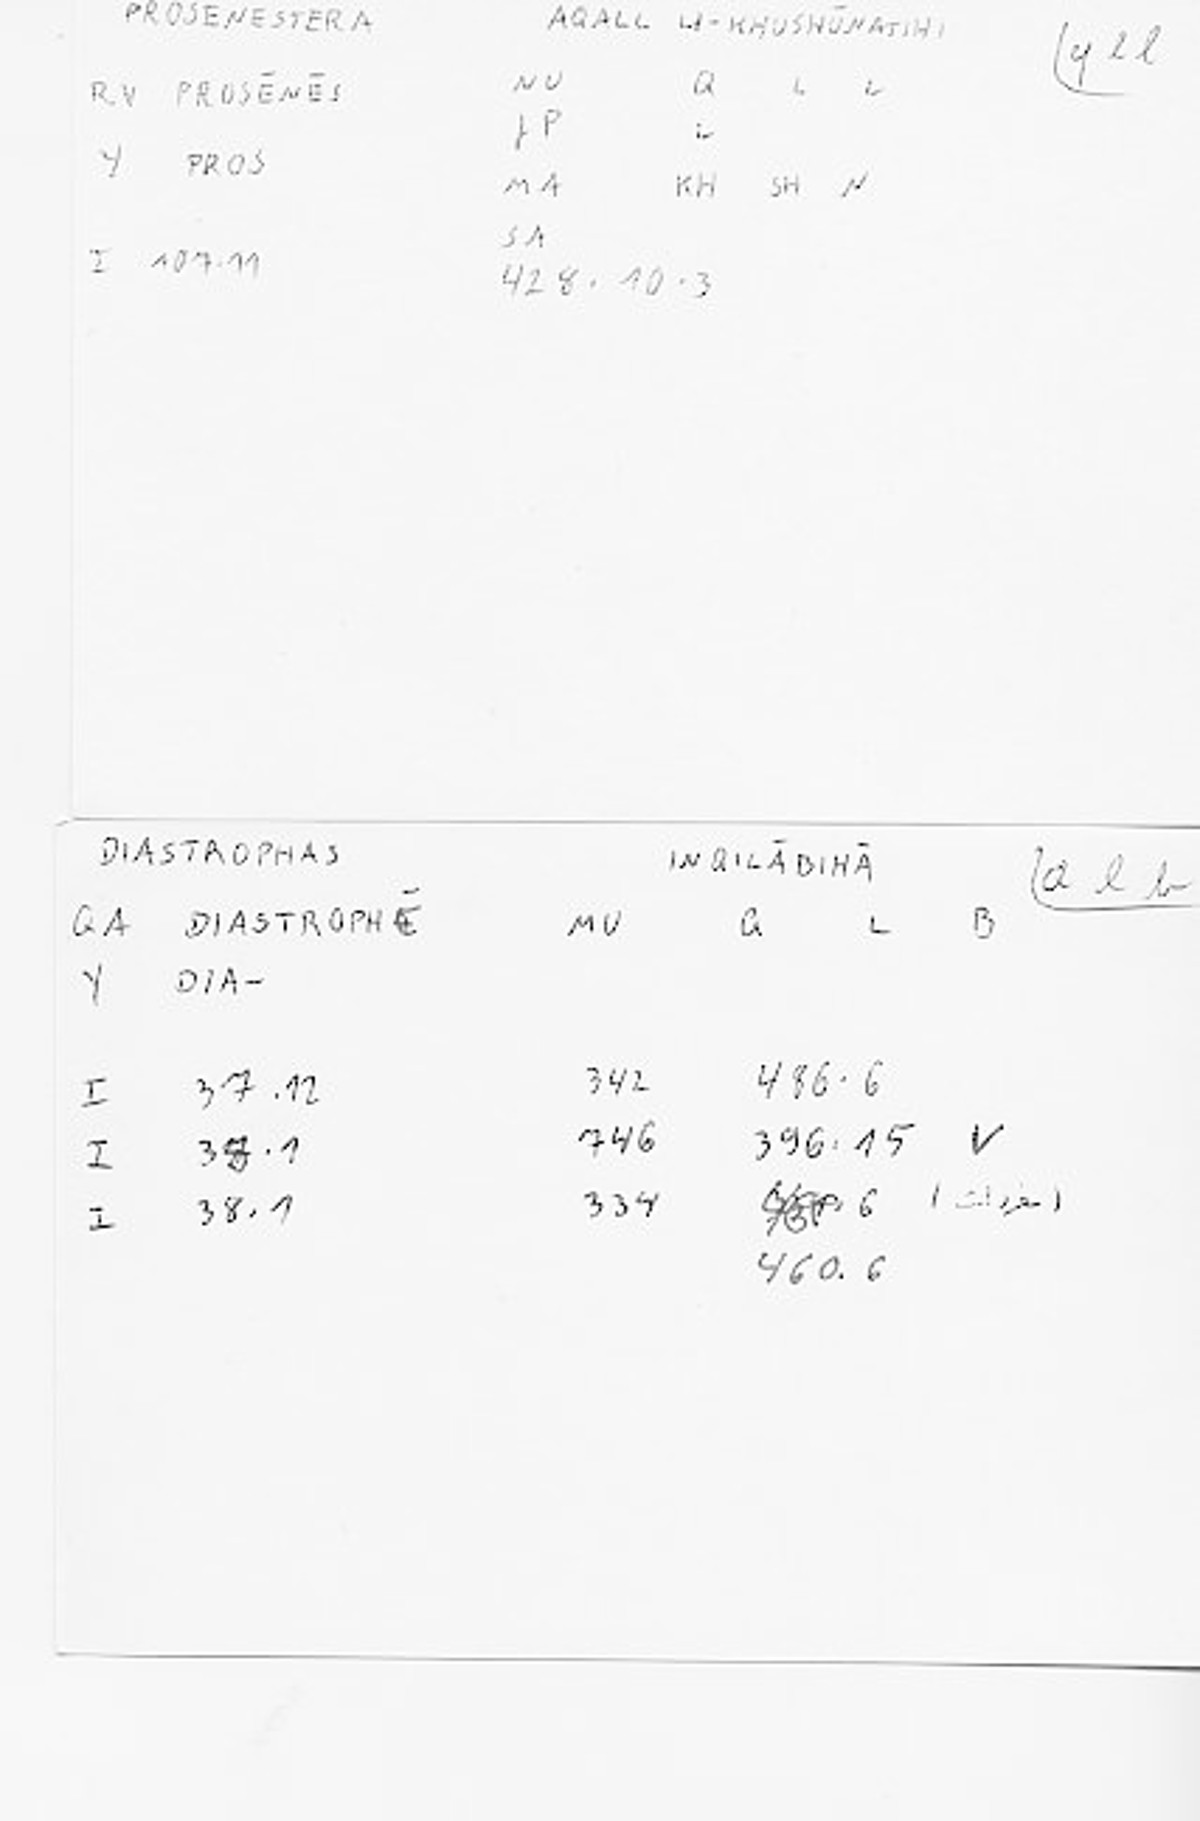 PROSENESTERA AQALL LI-KHUSHŪNATIHI q l l
RV PROSĒNĒS NU Q L L
Y PROS JP L
MA KH SH N
SA
I 107.11 428.10.3
DIASTROPHAS INQILĀBIHĀ q l b
QA DIASTROPHĒ MU Q L B
Y DIA-
I 37.12 342 486.6
I 38.1 746 396.15 V
I 38.1 334 .6 (مفردات)
460.6